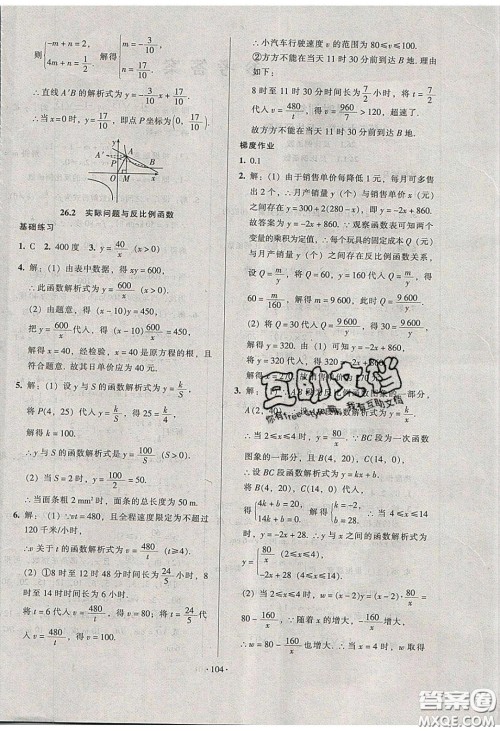 则{-m+n=2, 4m+n=1/2. 解得{m=-3/10, n=17/10.
∴直线 A'B 的解析式为 y=-3/10 x+17/10.
∴当 x=0 时, y=17/10, 即点 P 坐标为(0, 17/10).
y
A'
A
P
B
O
M
x
26.2 实际问题与反比例函数
基础练习
1. C 2. 400 度 3. y=40/x (x>0)
4. 解：(1) 由表中数据，得 xy=600,
∴此函数解析式为 y=600/x (x>0).
(2) 由题意，得 (x-10)y=450,
把 y=600/x 代入，得 (x-10)·600/x=450,
解得 x=40, 经检验，x=40 是原方程的根，且
符合题意. 故其日单价应为 40 元.
5. 解：(1) 设 y 与 S 的函数解析式为 y=k/S,
将 P(4, 25) 代入 y=k/S, 得 25=k/4,
解得 k=100. ∴函数解析式为 y=100/S.
(2) 当 S=2 时, y=100/2=50.
∴当面条粗 2 mm² 时，面条的总长度为 50 m.
6. 解：(1) ∵vt=480, 且全程速度限定为不超过
120 千米/小时,
∴v 关于 t 的函数解析式为 v=480/t (t≥4).
(2) ①8 时至 12 时 48 分时间长为 24/5 小时, 8
时至 14 时时间长为 6 小时,
将 t=6 代入 v=480/t, 得 v=80; 将 t=24/5 代
入 v=480/t, 得 v=100.
∴小汽车行驶速度 v 的范围为 80≤v≤100.
②方方不能在当天 11 时 30 分前到达 B 地. 理由
如下：
8 时至 11 时 30 分时间长为 7/2 小时, 将 t=7/2
代入 v=480/t, 得 v=960/7>120, 超速了.
故方方不能在当天 11 时 30 分前到达 B 地.
梯度作业
1. 0.1
2. 解：(1) 由于销售单价每降低 1 元，每月可多售
出 2 个，∴月产销量 y (个) 与销售单价 x (元)
之间存在 y=300+2(280-x)=-2x+860.
故答案为 y=-2x+860. ∵观察函数表可知两个
变量的乘积为定值，∴每个玩具的固定成本 Q (元)
与月产销量 y (个) 之间存在反比例函数关系,
设 Q=m/y, 将 Q=60, y=160 代入得到 Q=m/y,
解得 m=9 600, 此时 Q=9 600/y.
(2) 将 Q=30 代入 Q=9 600/y, 得到 30=9 600/y,
解得 y=320. 由 (1) y=-2x+860,
互助文档
A(2, 40),
∴当 2≤x≤4 时, y=80/x. ∵BC 段为一次函数
图象的一部分，且 B(4, 20), C(14, 0),
∴设 BC 段函数解析式为 y=kx+b.
得{4k+b=20, 14k+b=0. 解得{k=-2, b=28. ∴当 4≤x≤14
时, y=-2x+28. ∴y 与 x 之间的函数关系式为
y={80/x (2≤x≤4), -2x+28 (4≤x≤14).
(2) 当 2≤x≤4 时, w=(x-2)y=(x-2)·80/x
=80-160/x. ∵随着 x 的增大, -160/x 也增大,
∴w=80-160/x 也增大. ∴当 x=4 时, w 取得
· 104 ·
答案圈
MXQE.COM